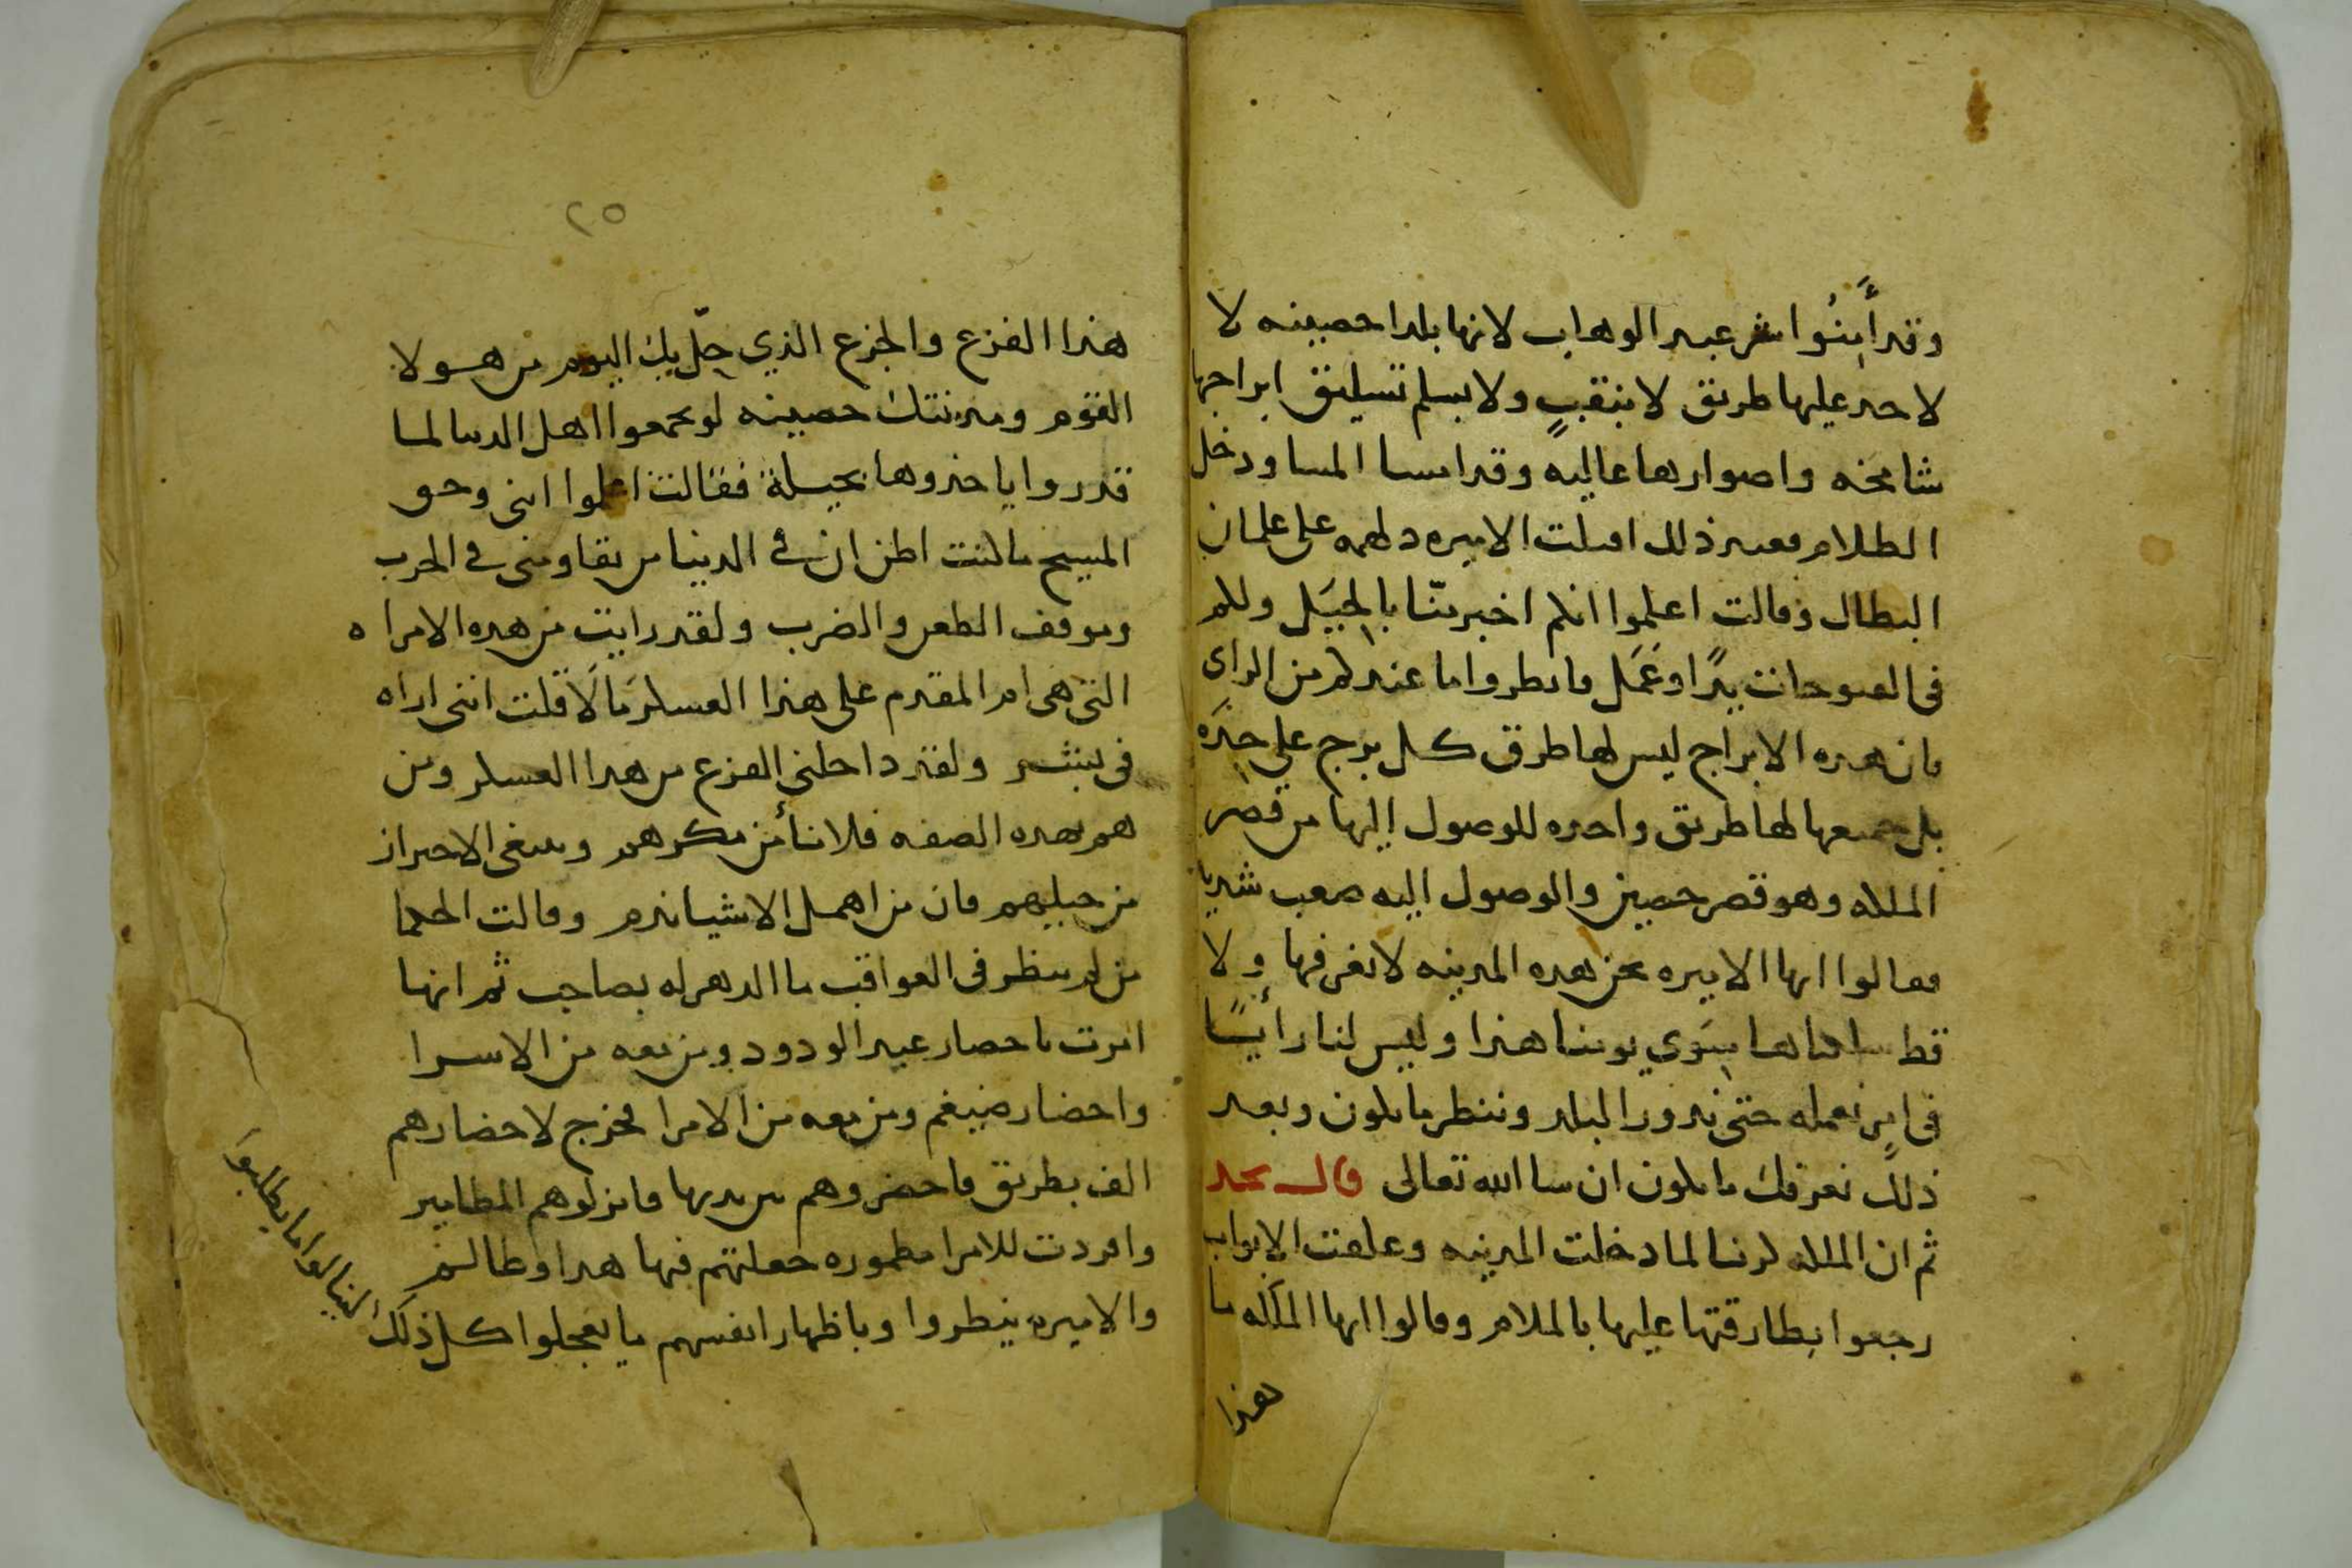 وقد أمِنُوا شر عبد الوهاب لانها بلدا حصينه لا
لاحد عليها طريق لا بنقبٍ ولا بسلم تسليق ابراجها
شامخه واصوارها عاليه وقد امسا المسا ودخل
الظلام فعند ذلك اقبلت الاميره دلهمه على غلمان
البطال وقالت اعلموا انكم اخبر منّا بالحِيَل ولكم
فى الفتوحات يدًا وعَمَل فانظروا ما عندكم من الراى
فان هذه الابراج ليس لها طرق كل برج على حِدَه
بل جميعها لها طريق واحده للوصول اليها من قصر
الملكه وهو قصر حصين والوصول اليه صعب شديد
فقالوا ايها الاميره نحن هذه المدينه لا نعرفها ولا
قط دخلناها سِوَي يومنا هذا وليس لنا رأيًا
فى امرٍ نعمله حتى ندور البلد وننظر ما يكون وبعد
ذلك نعرفك ما يكون ان شا الله تعالى قال نجد
ثم ان الملكه لما دخلت المدينه وغلقت الابواب
رجعوا بطارقتها عليها بالملام وقالوا ايها الملكه ما
هذا
٢٥
هذا الفزع والجزع الذي حلّ بك اليوم من هولا
القوم ومدينتك حصينه لو تجمعوا اهل الدنيا لما
قدروا ياخذوها بحيلة فقالت اعلموا اننى وحق
المسيح ما كنت اظن ان فى الدنيا من يقاومنى فى الحرب
وموقف الطعن والضرب ولقد رايت من هذه الامراه
التى هى ام المقدم على هذا العسكر مَا لَا قلت اننى اراه
فى بشر ولقد داخلنى الفزع من هذا العسكر ومن
هم بهذه الصفه فلا نأمن مكرهم وينبغى الاحتراز
من حيلهم فان من اهمل الاشيا ندم وقالت الحكما
من لم ينظر فى العواقب ما الدهر له بصاحب ثم انها
امرت باحضار عبد الودود ومن معه من الاسرا
واحضار ضيغم ومن معه من الامرا فخرج لاحضارهم
الف بطريق فاحضروهم بين يديها فانزلوهم المطامير
وافردت للامرا مطموره جعلتهم فيها هذا وطالم
والاميره ينظروا وباظهار انفسهم ما يعجلوا كل ذلك
لينالوا ما يطلبوا